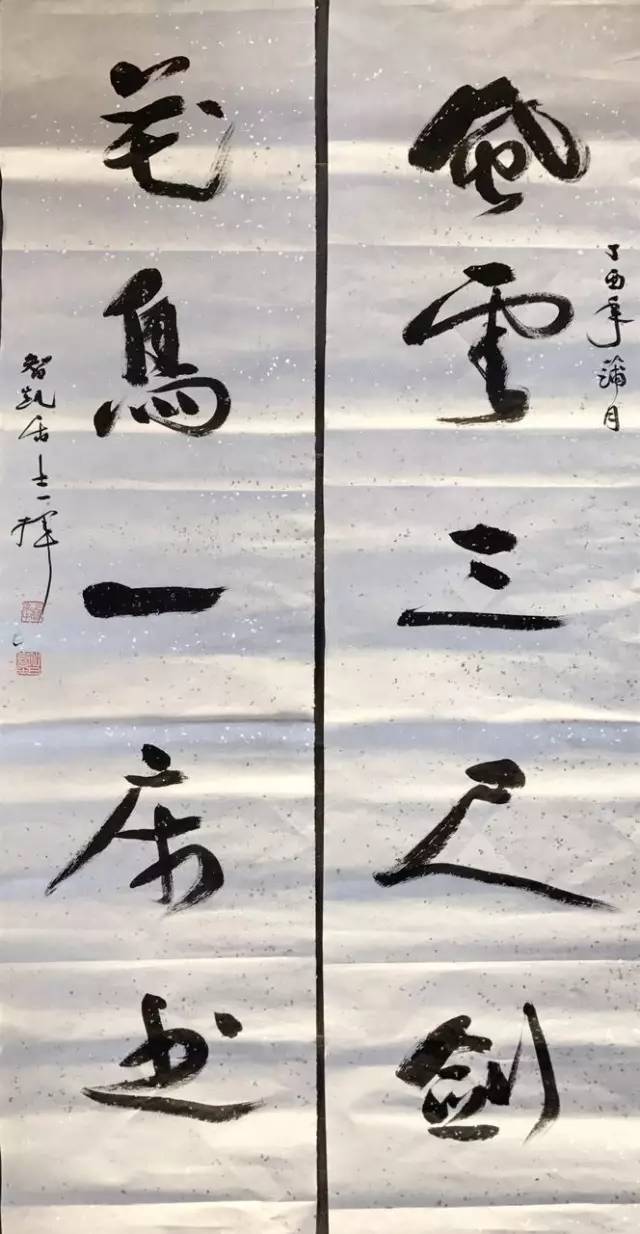 風雲三尺劍
丁酉年蒲月
花鳥一床书
智凱居士一揮